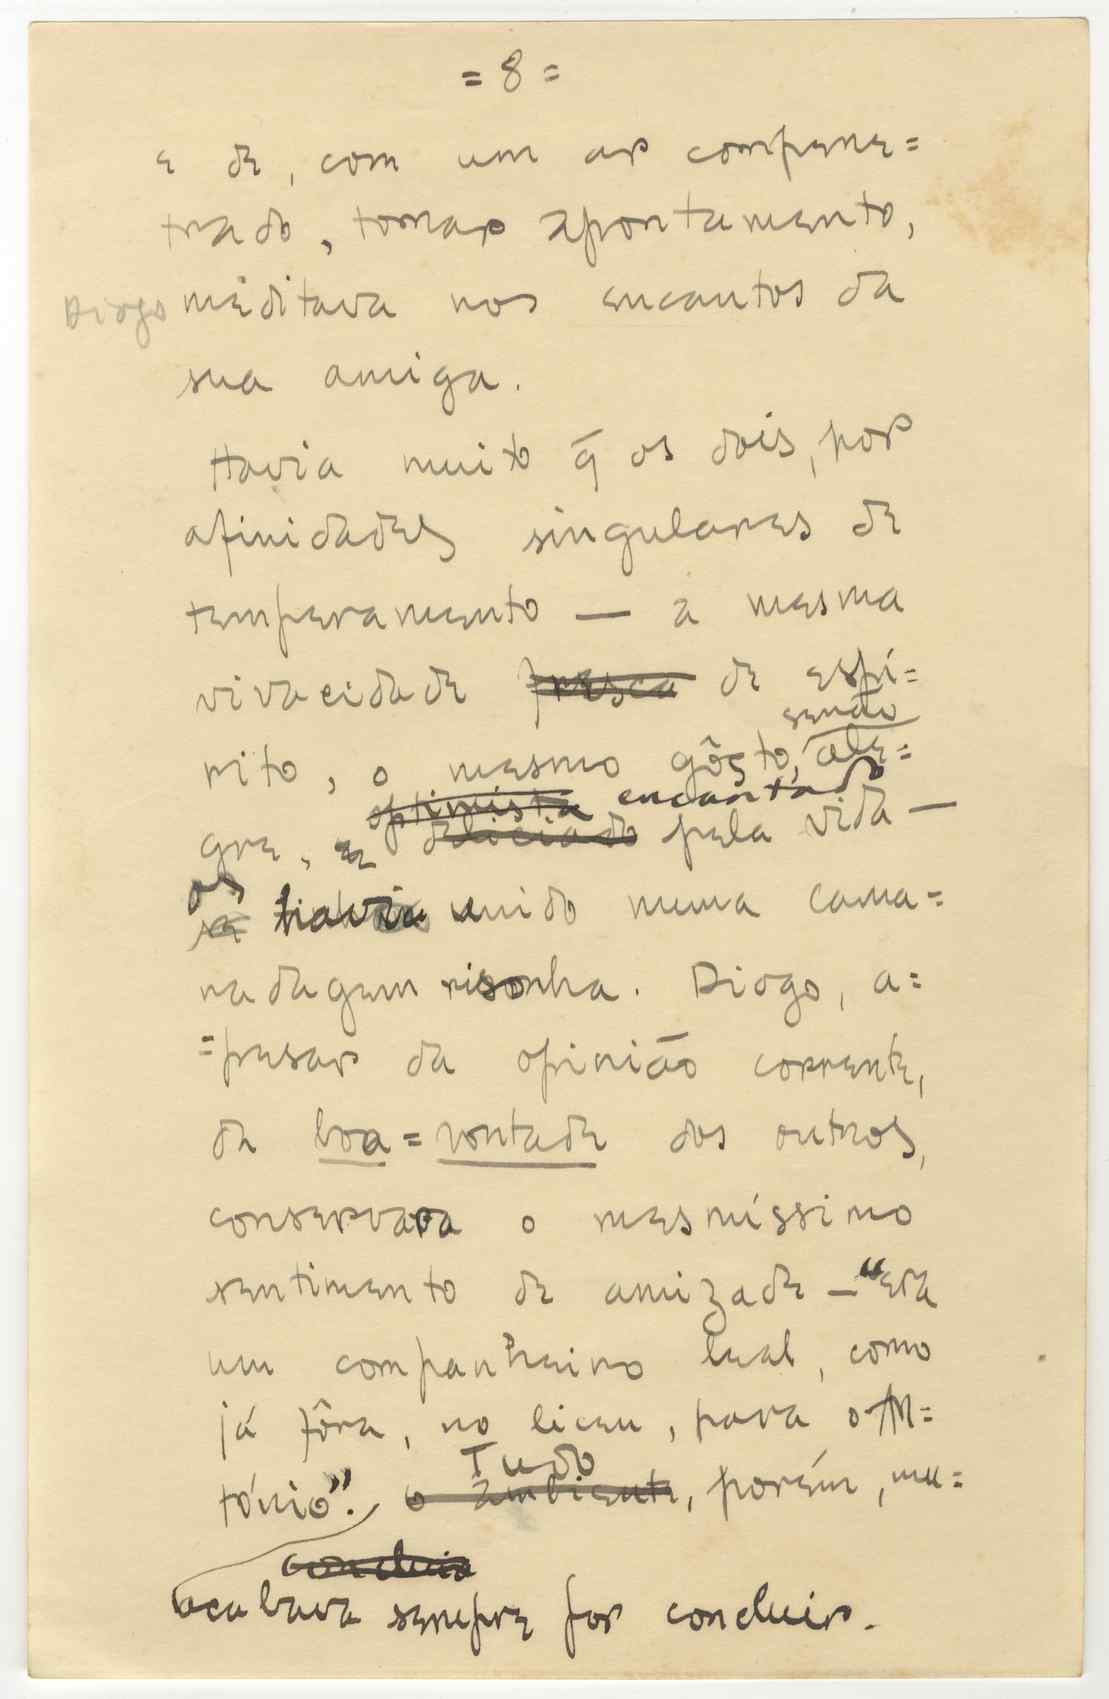 = 8 =
e de, com um ar compene=
trado, tomar apontamento,
Diogo meditava nos encantos da
sua amiga.
Havia muito q̄ os dois, por
afinidades singulares de
temperamento — a mesma
vivacidade fresca de espí=
senão
rito, o mesmo gôsto, ale=
optimista encantado
gre, e deliciado pela vida —
os
se havia unido numa cama=
radagem risonha. Diogo, a=
=pesar da opinião corrente,
da boa=vontade dos outros,
conservara o mesmíssimo
sentimento de amizade — "era
um companheiro leal, como
já fôra, no liceu, para o An=
Tudo
tónio". o ambiente, porém, mu=
concluia
acabava sempre por concluir.